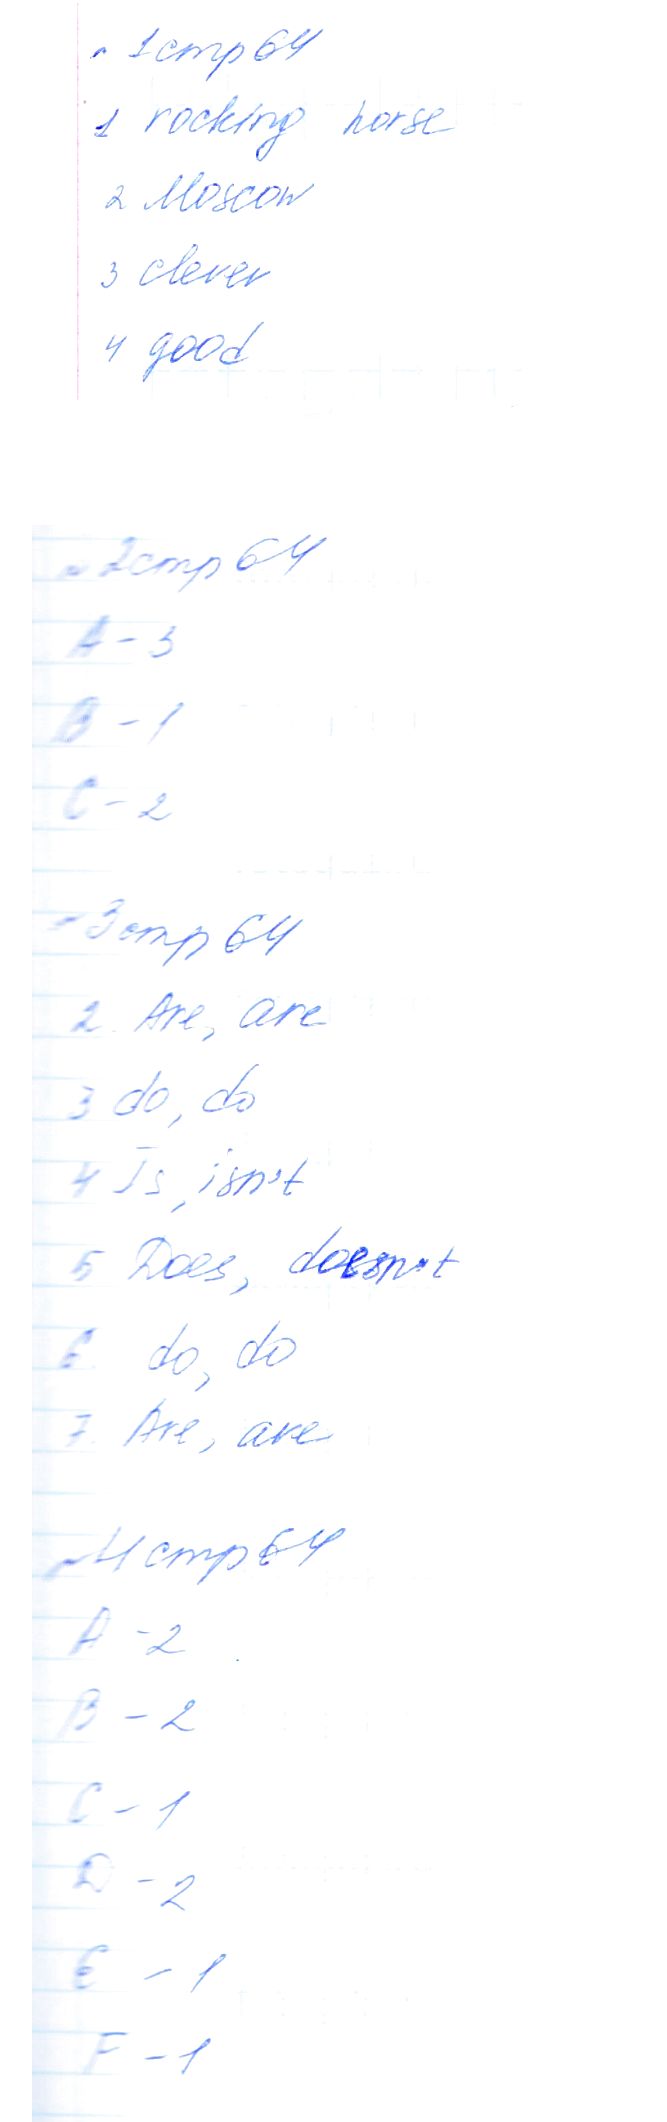 ~ 1 стр 64
1 rocking horse
2 Moscow
3 clever
4 good
~ 2 стр 64
A - 3
B - 1
C - 2
~ 3 стр 64
2. Are, are
3 do, do
4 Is, isn't
5 Does, doesn't
6 do, do
7. Are, are
~ 4 стр 64
A - 2
B - 2
C - 1
D - 2
E - 1
F - 1